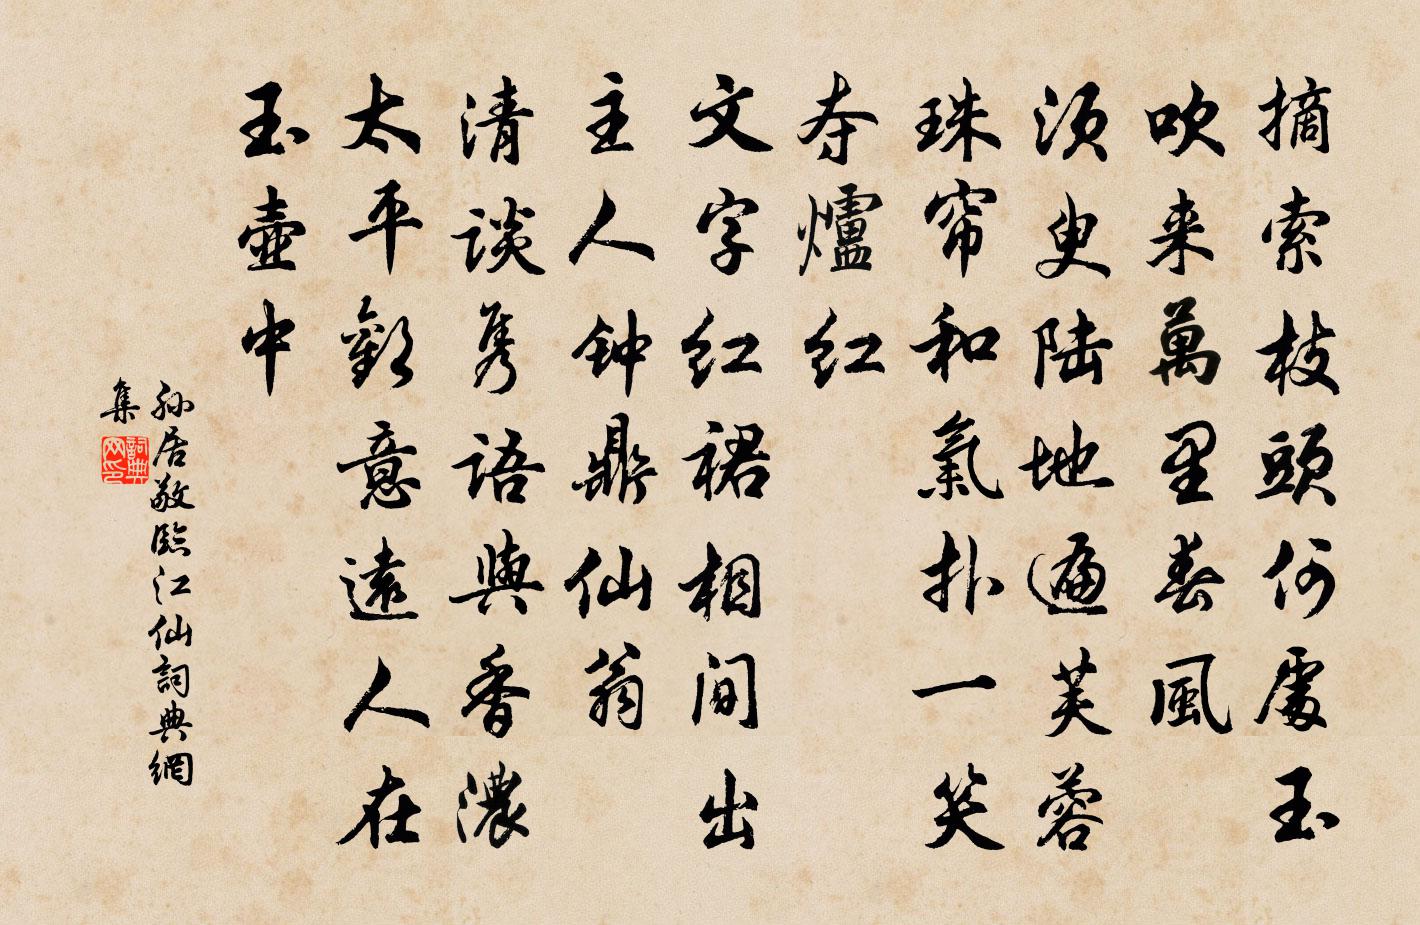 摘索枝頭何處玉
吹来萬里春風
須臾陆地遍芙蓉
珠帘和氣扑一笑
夺爐红
文字红裙相间出
主人钟鼎仙翁
清谈隽語與香濃
太平歡意遠人在
玉壺中
孙居敬臨江仙詞典網
集
詞典网印